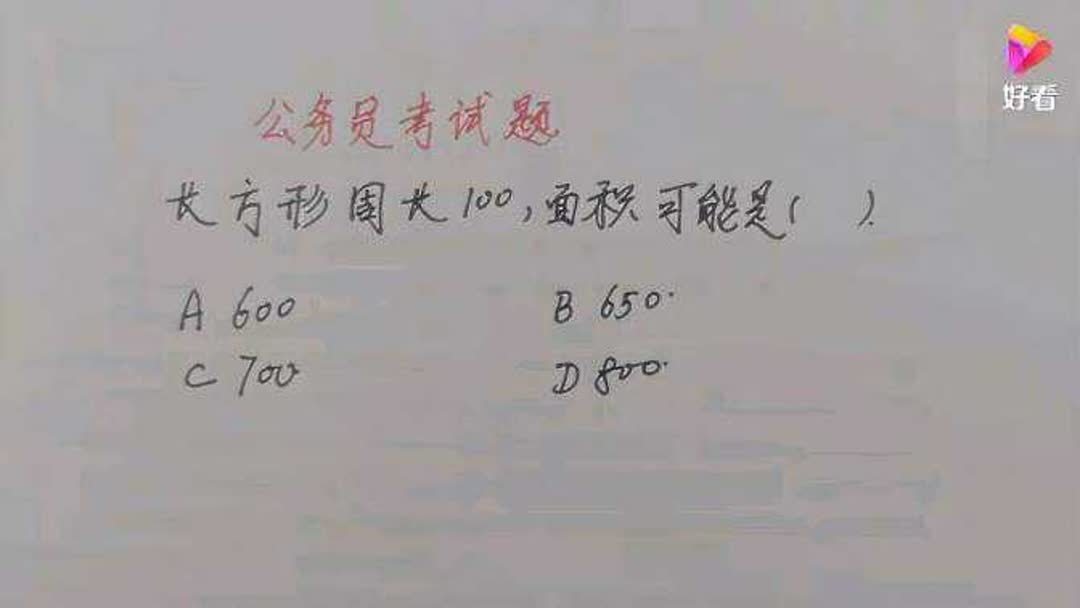 好看
公务员考试题
长方形周长100,面积可能是( ).
A 600 B 650.
C 700 D 800.